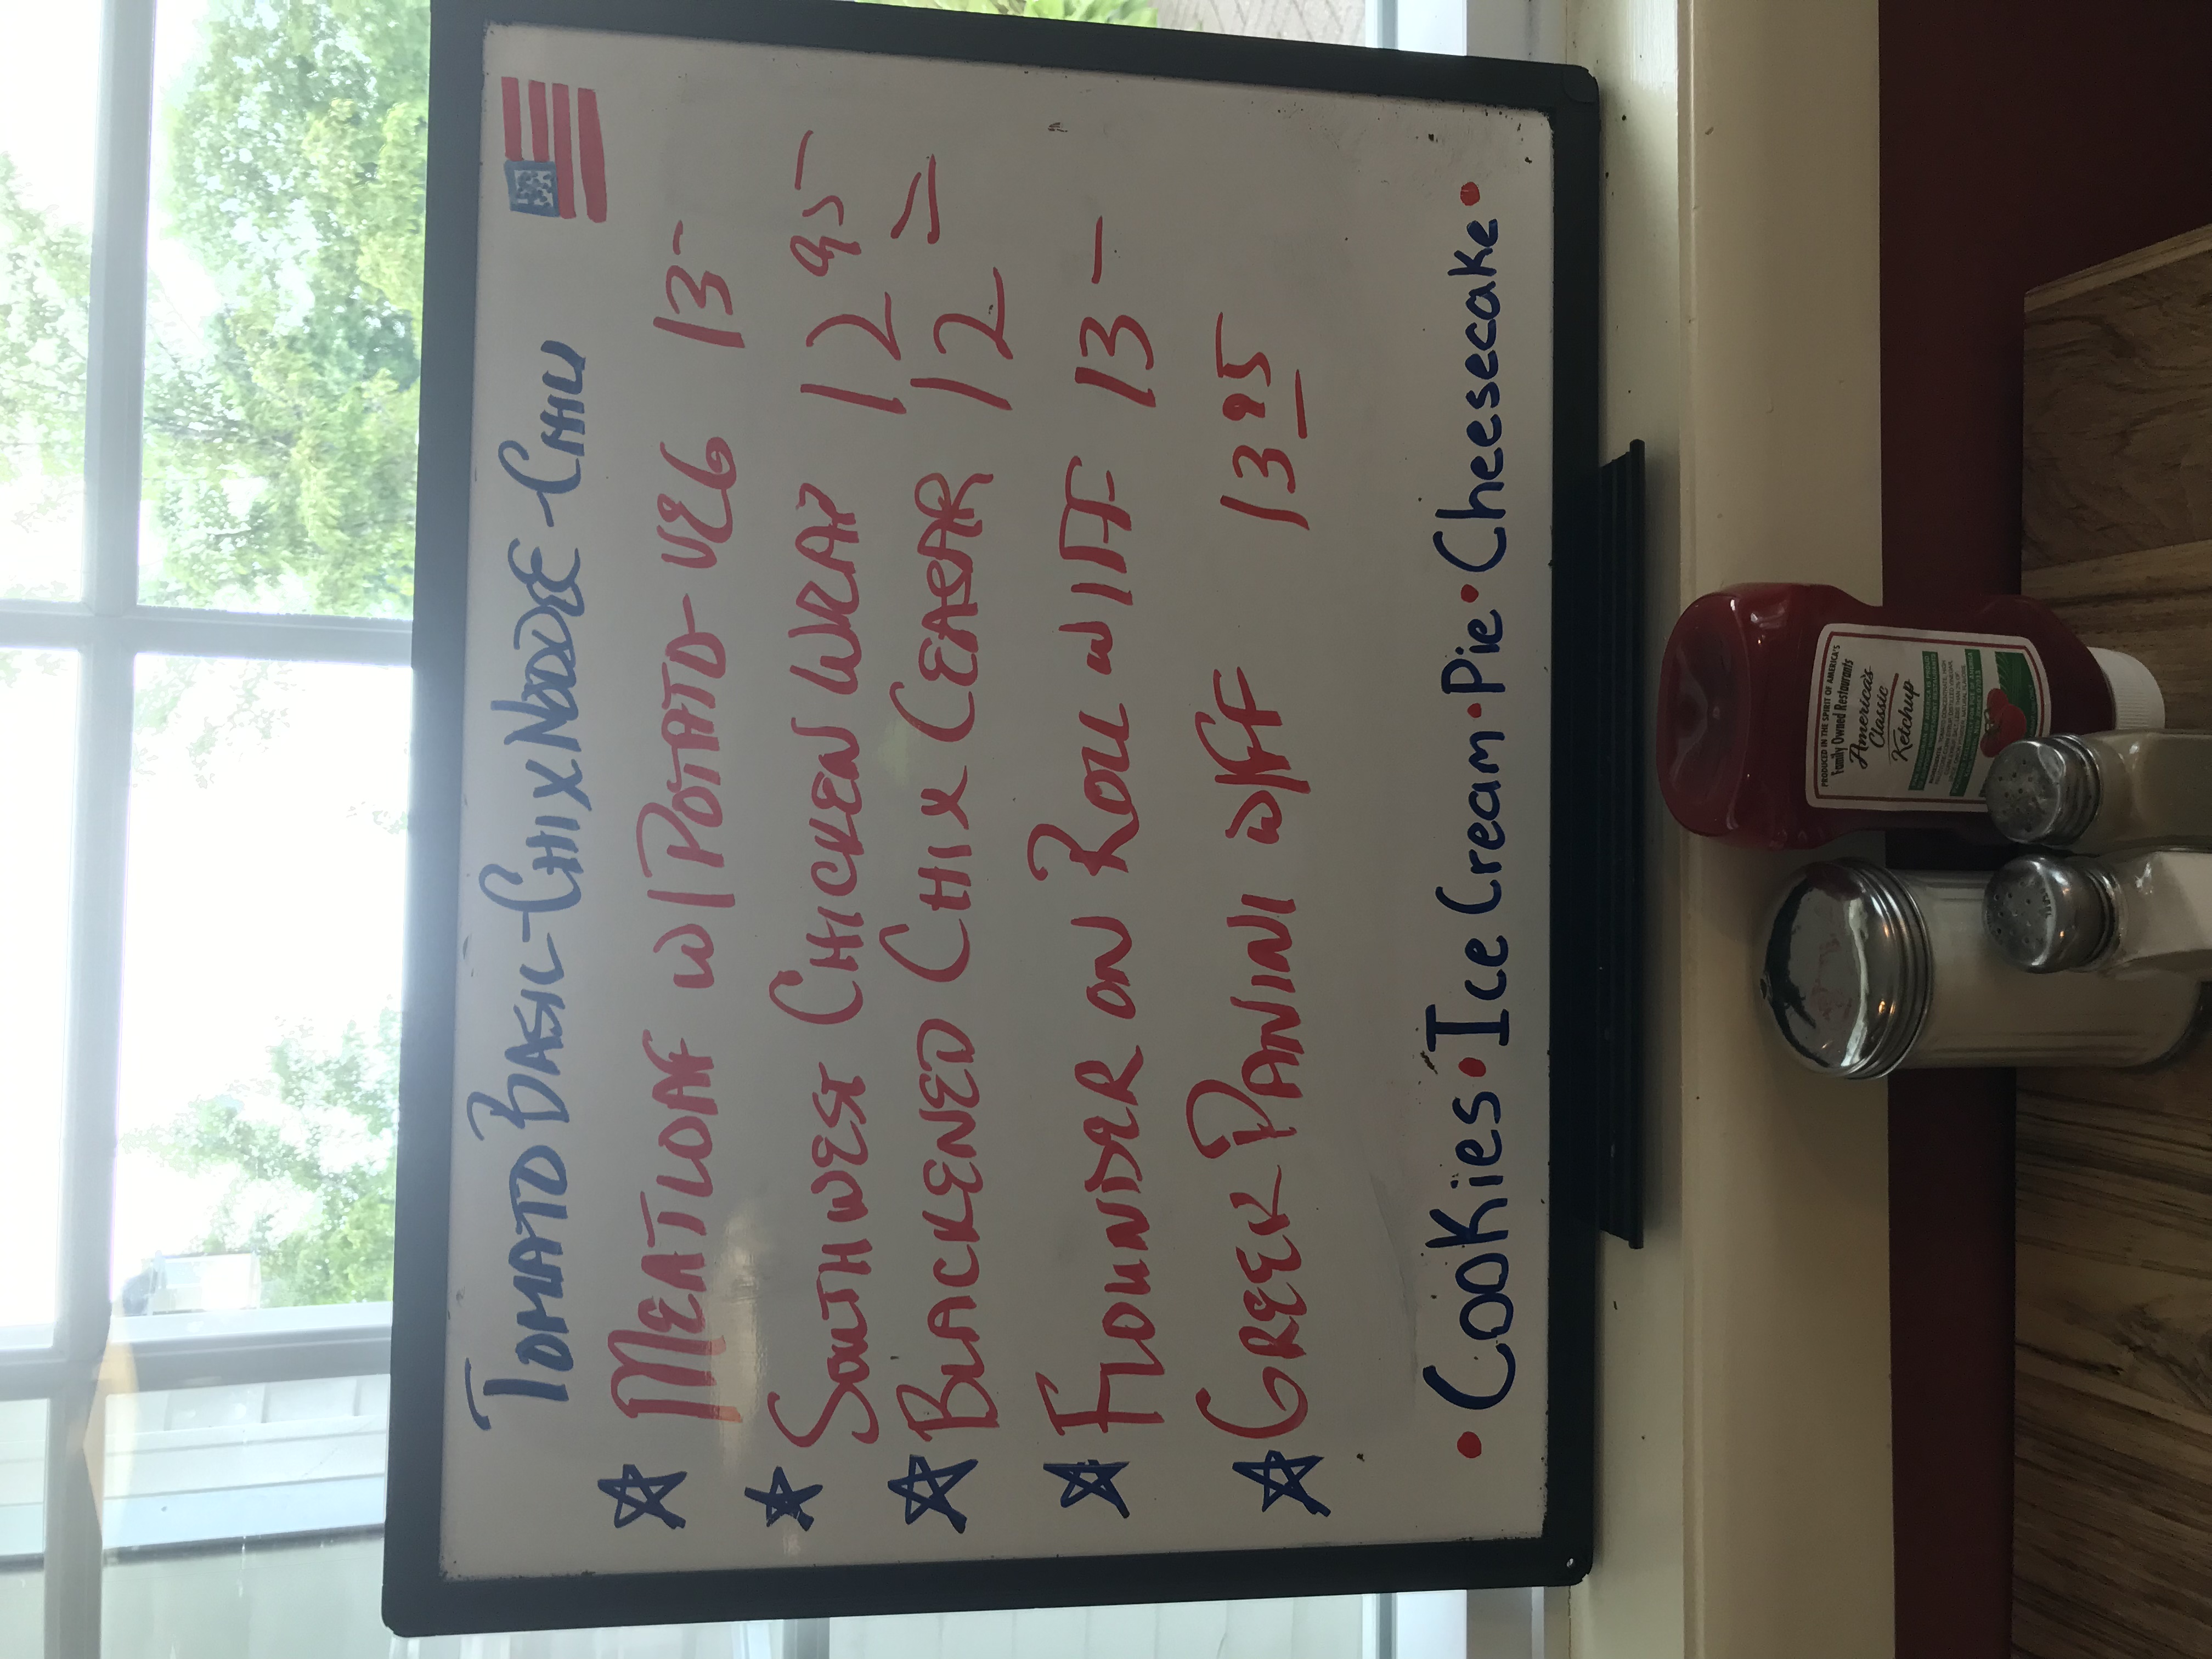 TOMATO BASIL - CHIX NOODLE - CHILI
MEATLOAF W/ POTATO - VEG 13-
SOUTHWEST CHICKEN WRAP 12 95
BLACKENED CHIX CEASAR 12 =
FLOUNDER ON ROLL W/FF 13 -
GREEK PANINI W/FF 13 95
• Cookies • Ice Cream • Pie • Cheesecake •
PRODUCED IN THE SPIRIT OF AMERICA'S
Family Owned Restaurants
America's
Classic
Ketchup